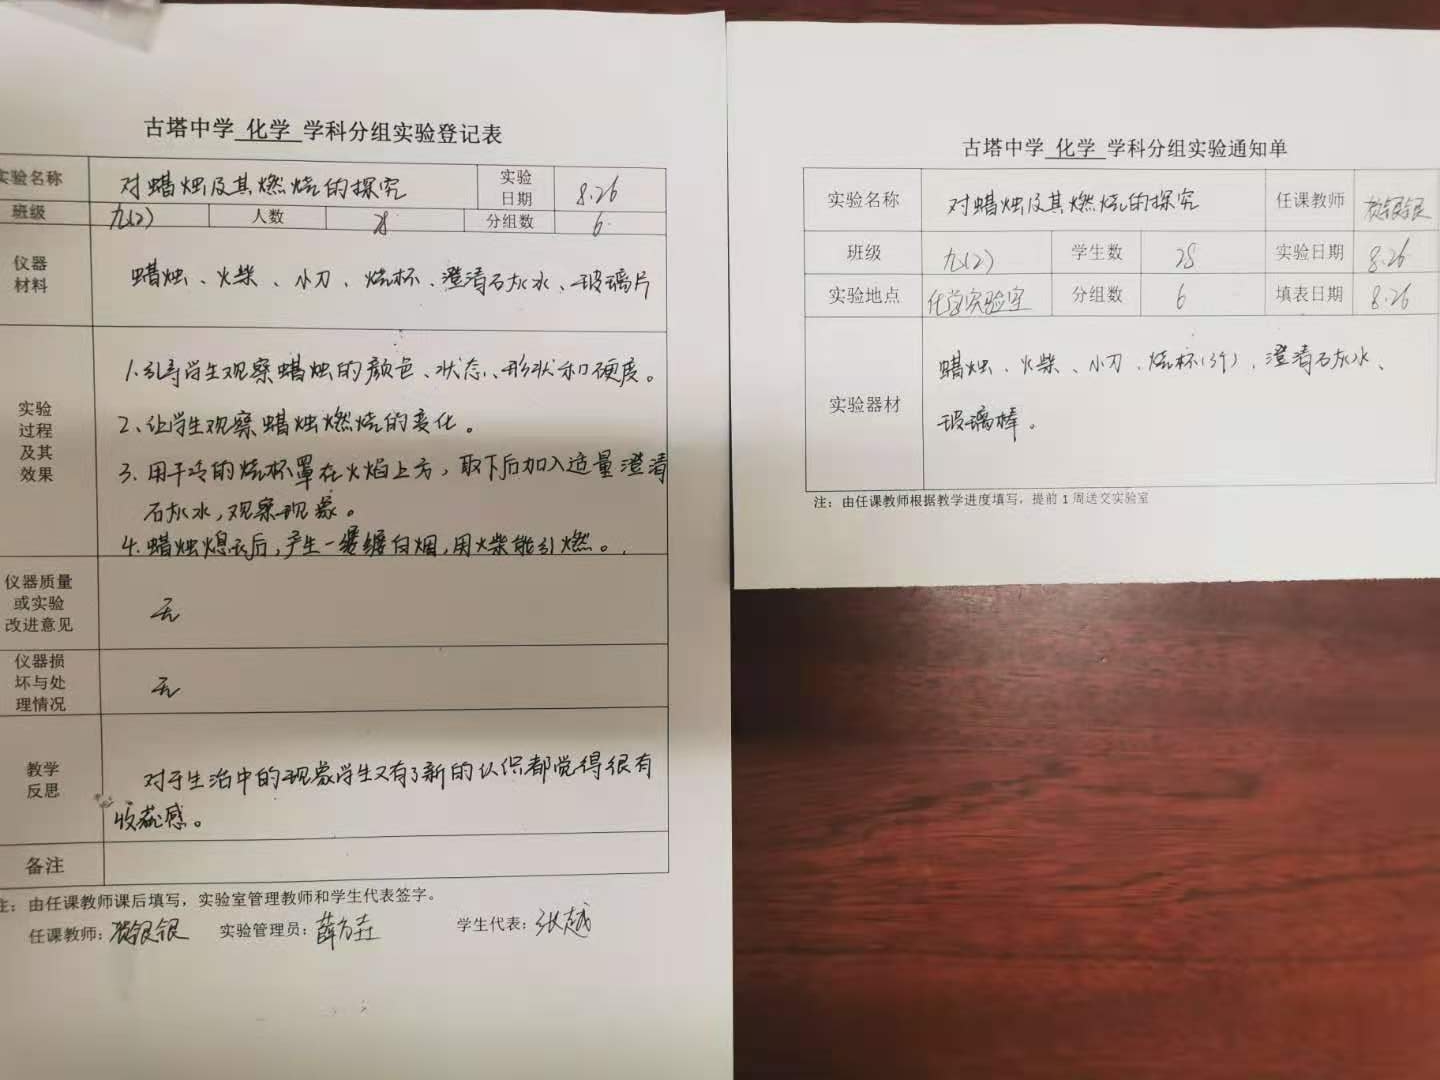 古塔中学 化学 学科分组实验登记表
实验名称 对蜡烛及其燃烧的探究 实验日期 8.26
班级 九(2) 人数 28 分组数 6
仪器材料 蜡烛、火柴、小刀、烧杯、澄清石灰水、玻璃片
实验过程及其效果
1.引导学生观察蜡烛的颜色、状态、形状和硬度。
2、让学生观察蜡烛燃烧的变化。
3.用干冷的烧杯罩在火焰上方，取下后加入适量澄清
石灰水，观察现象。
4.蜡烛熄灭后，产生一缕缕白烟，用火柴能引燃。
仪器质量或实验改进意见 无
仪器损坏与处理情况 无
教学反思
对于生活中的现象学生又有了新的认识都觉得很有
收获感。
备注
注：由任课教师课后填写，实验室管理教师和学生代表签字。
任课教师： 银银 实验管理员：薛 学生代表：张越
古塔中学 化学 学科分组实验通知单
实验名称 对蜡烛及其燃烧的探究 任课教师 银银
班级 九(2) 学生数 28 实验日期 8.26
实验地点 化学实验室 分组数 6 填表日期 8.26
实验器材
蜡烛、火柴、小刀、烧杯(3个)、澄清石灰水、
玻璃棒。
注：由任课教师根据教学进度填写，提前1周送交实验室